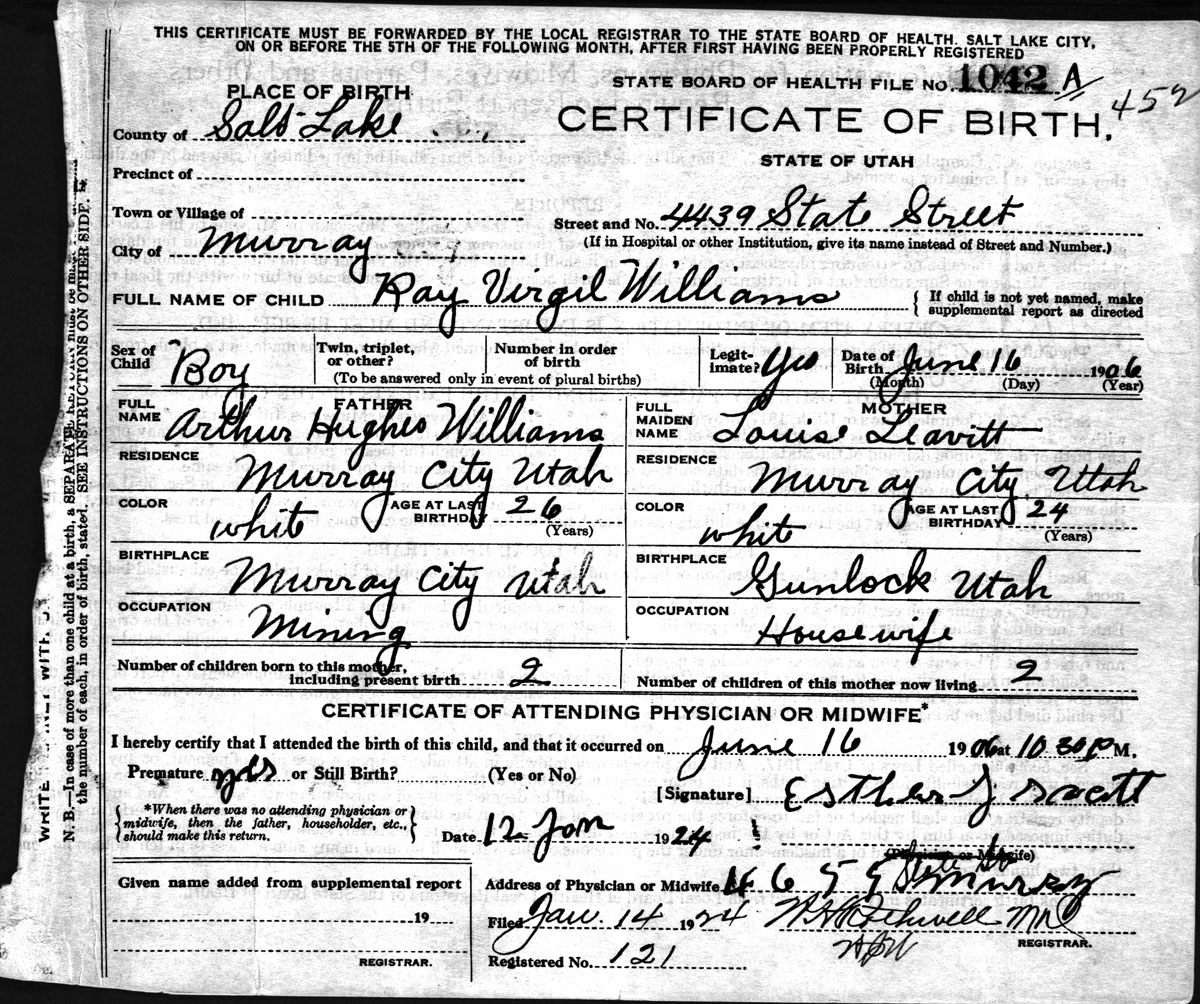 THIS CERTIFICATE MUST BE FORWARDED BY THE LOCAL REGISTRAR TO THE STATE BOARD OF HEALTH. SALT LAKE CITY,
ON OR BEFORE THE 5TH OF THE FOLLOWING MONTH, AFTER FIRST HAVING BEEN PROPERLY REGISTERED
STATE BOARD OF HEALTH FILE No. 1042 A
452
PLACE OF BIRTH
CERTIFICATE OF BIRTH.
County of Salt Lake
STATE OF UTAH
Precinct of
Town or Village of
Street and No. 4439 State Street
City of Murray
(If in Hospital or other Institution, give its name instead of Street and Number.)
FULL NAME OF CHILD Ray Virgil Williams
If child is not yet named, make supplemental report as directed
Sex of Child Boy
Twin, triplet, or other?
Number in order of birth
(To be answered only in event of plural births)
Legitimate? Yes
Date of Birth June 16 1906
(Month) (Day) (Year)
FATHER
FULL NAME Arthur Hughes Williams
RESIDENCE Murray City Utah
COLOR white
AGE AT LAST BIRTHDAY 26
(Years)
BIRTHPLACE Murray City Utah
OCCUPATION Mining
MOTHER
FULL MAIDEN NAME Louise Leavitt
RESIDENCE Murray City, Utah
COLOR white
AGE AT LAST BIRTHDAY 24
(Years)
BIRTHPLACE Gunlock Utah
OCCUPATION Housewife
Number of children born to this mother,
including present birth 2
Number of children of this mother now living 2
CERTIFICATE OF ATTENDING PHYSICIAN OR MIDWIFE*
I hereby certify that I attended the birth of this child, and that it occurred on June 16 1906 at 10 30 P M.
Premature or Still Birth? (Yes or No)
[Signature] Esther J
*When there was no attending physician or
midwife, then the father, householder, etc.,
should make this return.
Date 12 Jan 1924
(Physician or Midwife)
Given name added from supplemental report
19
REGISTRAR.
Address of Physician or Midwife 4659 State St Murray
Filed Jan. 14 1924
REGISTRAR.
Registered No. 121
N. B.—In case of more than one child at a birth, a SEPARATE RETURN must be made
the number of each, in order of birth, stated. SEE INSTRUCTIONS ON OTHER SIDE.